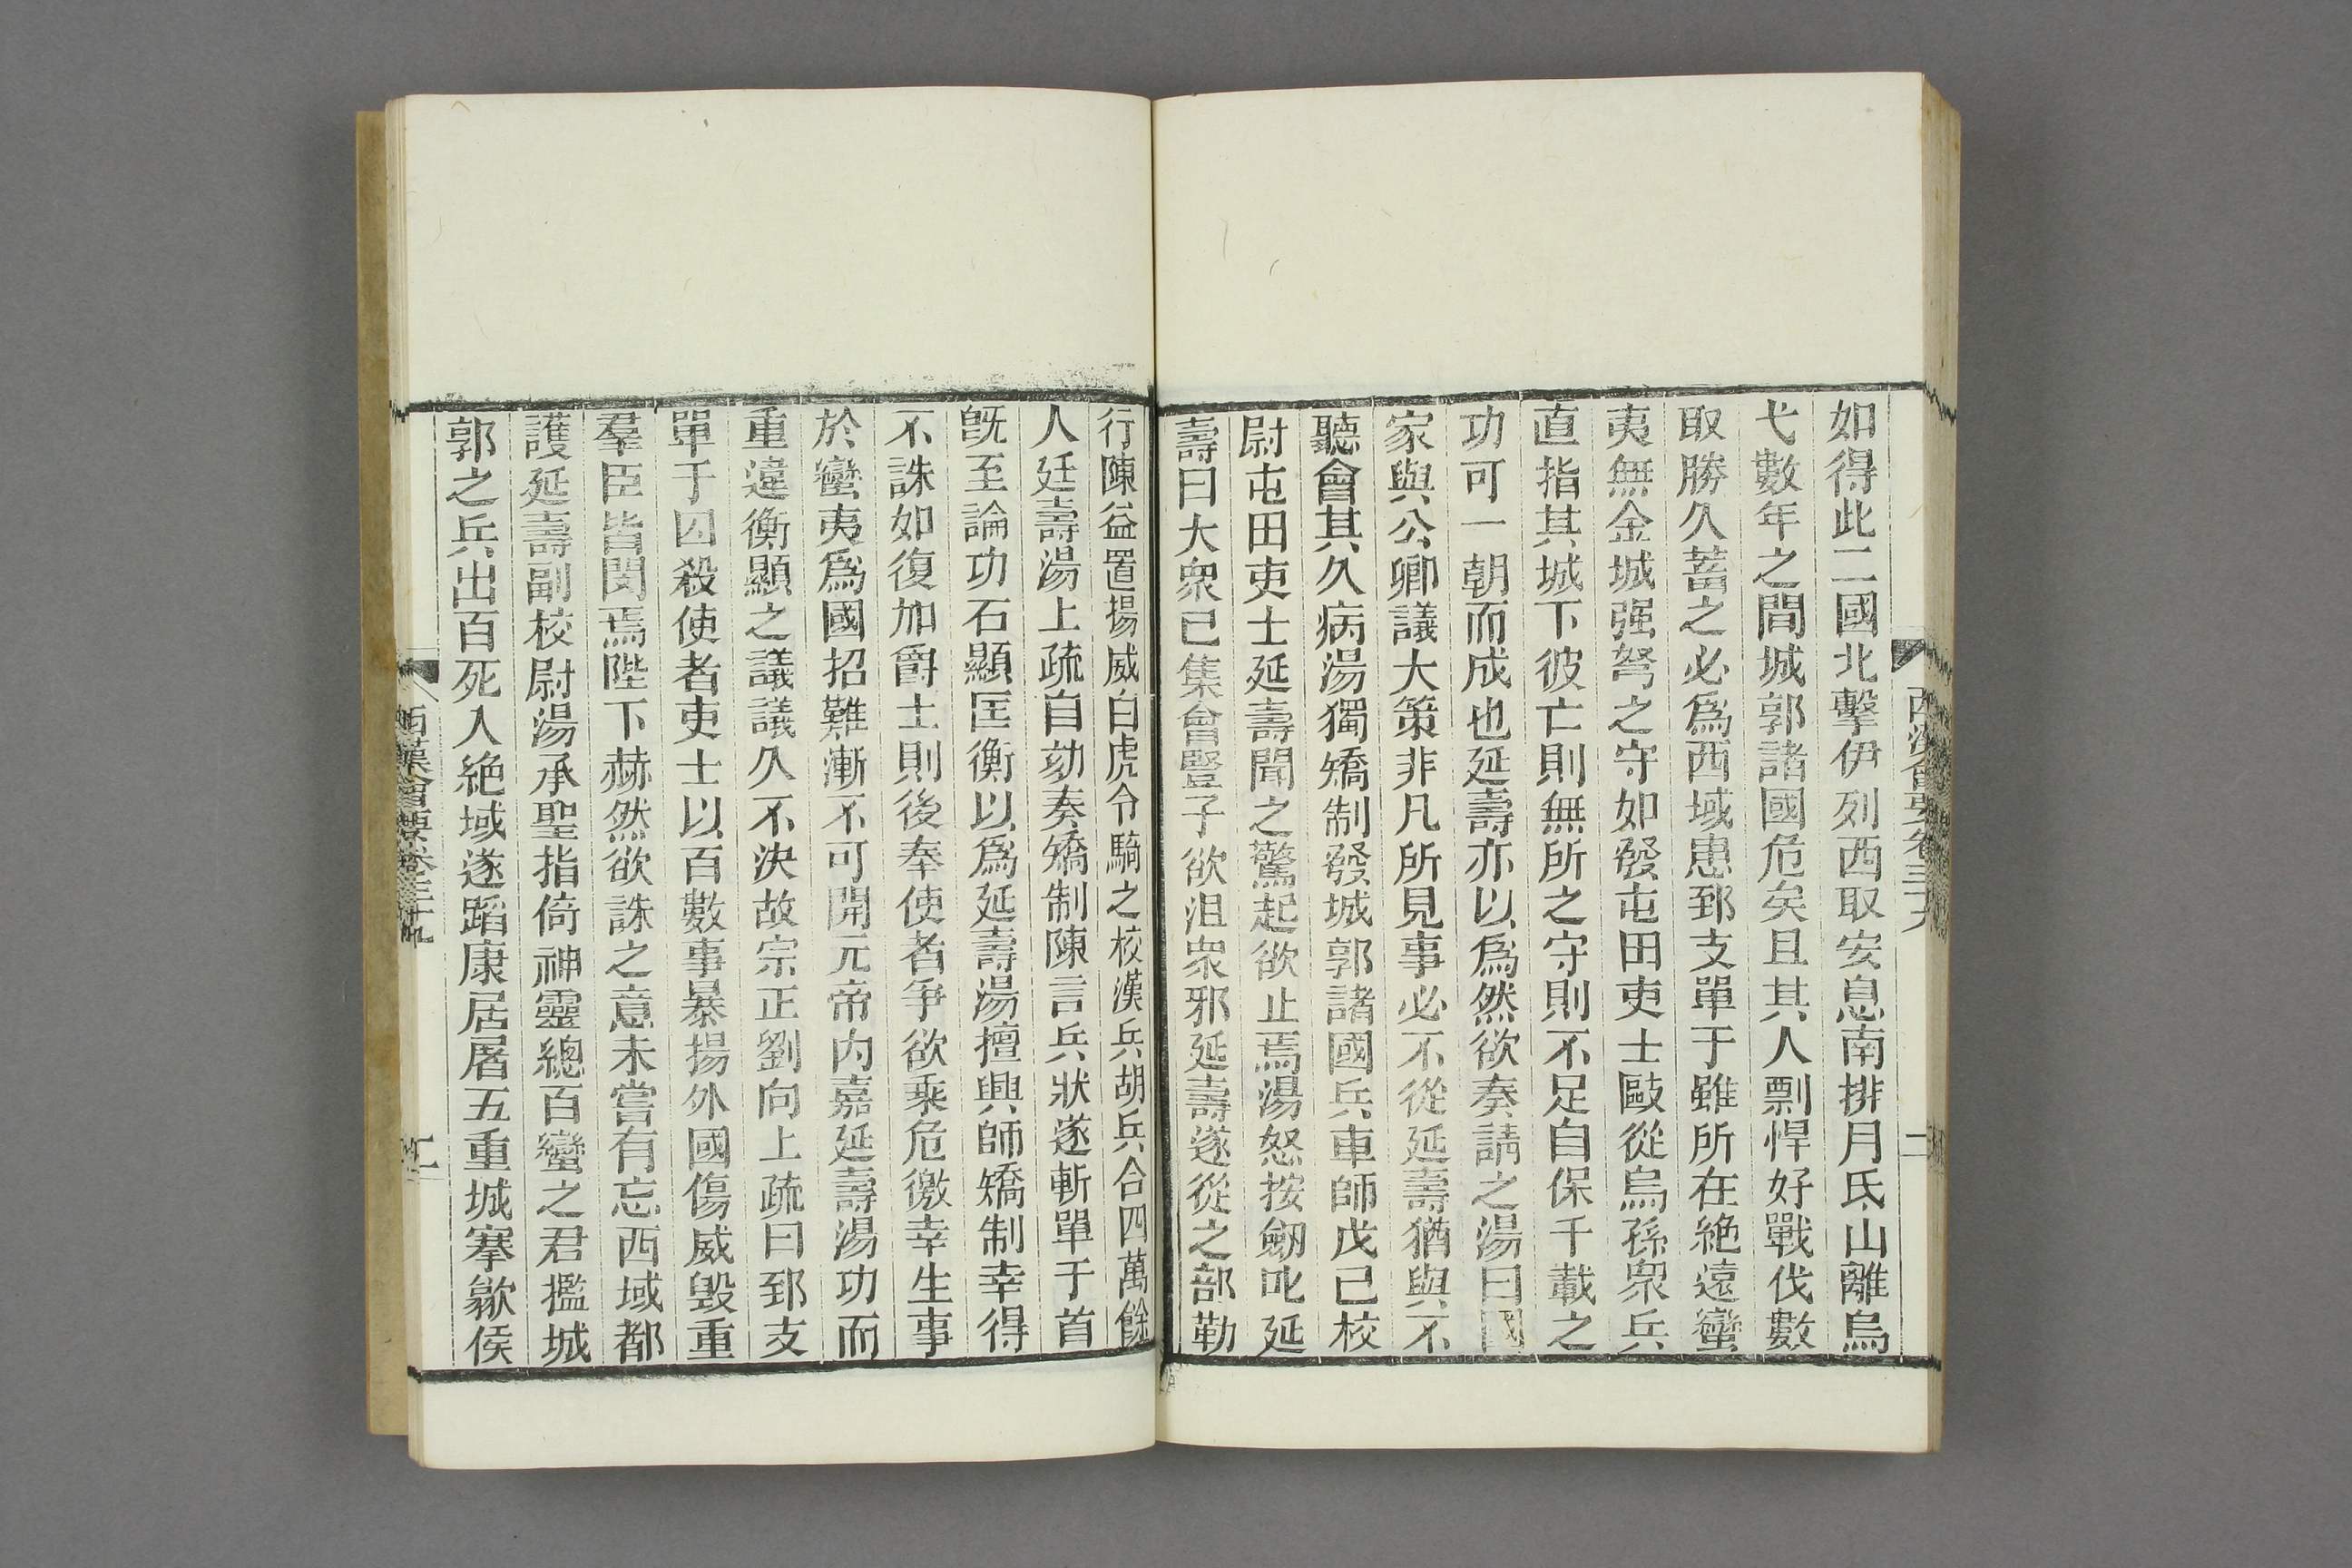 如得此二國北擊伊列西取安息南排月氐山離烏
弋數年之間城郭諸國危矣且其人剽悍好戰伐數
取勝久蓄之必爲西域患郅支單于雖所在絶遠蠻
夷無金城强弩之守如發屯田吏士敺從烏孫衆兵
直指其城下彼亡則無所之守則不足自保千載之
功可一朝而成也延壽亦以爲然欲奏請之湯曰國
家與公卿議大策非凡所見事必不從延壽猶與不
聽會其久病湯獨矯制發城郭諸國兵車師戊己校
尉屯田吏士延壽聞之驚起欲止焉湯怒按劒叱延
壽曰大衆已集會豎子欲沮衆邪延壽遂從之部勒
行陳益置揚威白虎令騎之校漢兵胡兵合四萬餘
人延壽湯上疏自劾奏矯制陳言兵狀遂斬單于首
旣至論功石顯匡衡以爲延壽湯擅興師矯制幸得
不誅如復加爵土則後奉使者爭欲乘危徼幸生事
於蠻夷爲國招難漸不可開元帝内嘉延壽湯功而
重違衡顯之議議久不決故宗正劉向上疏曰郅支
單于囚殺使者吏士以百數事暴揚外國傷威毁重
羣臣皆閔焉陛下赫然欲誅之意未嘗有忘西域都
護延壽副校尉湯承聖指倚神靈總百蠻之君攬城
郭之兵出百死入絶域遂蹈康居屠五重城搴歙侯
西漢會要卷三十九
二